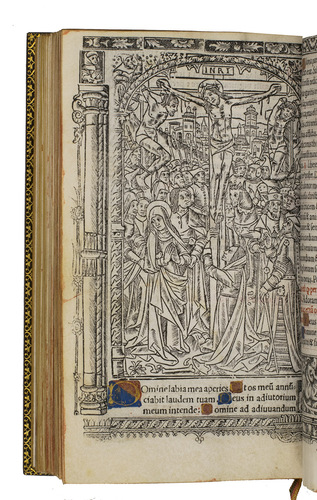 INRI
Domine labia mea aperies. Et os meū annū-
ciabit laudem tuam. Deus in adiutorium
meum intende: Domine ad adiuvandum